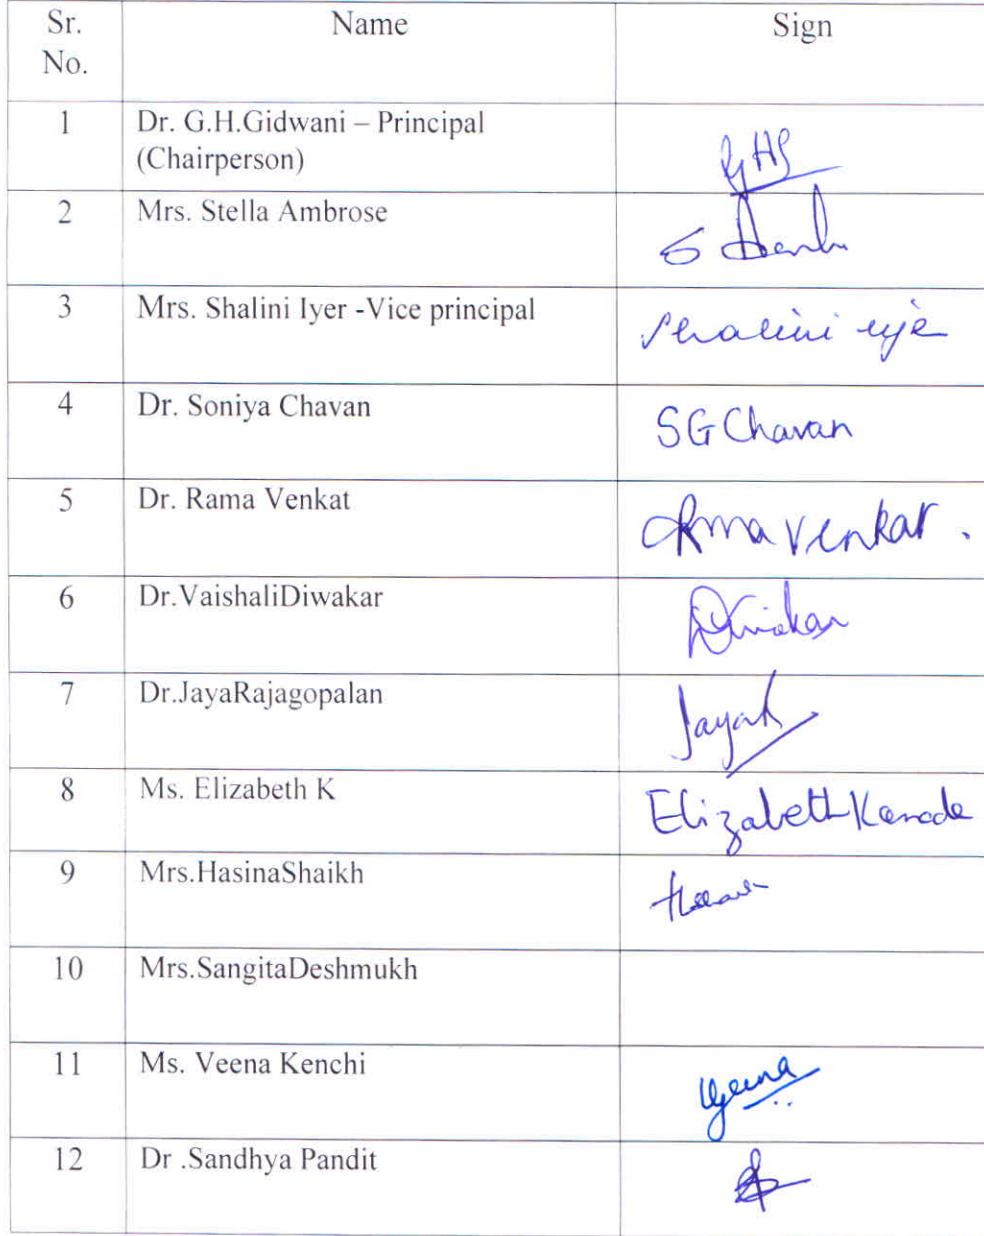 Sr. No. Name Sign
1 Dr. G.H.Gidwani – Principal
(Chairperson) GHG
2 Mrs. Stella Ambrose
3 Mrs. Shalini Iyer -Vice principal Shalini
4 Dr. Soniya Chavan SG Chavan
5 Dr. Rama Venkat Rama Venkat.
6 Dr.VaishaliDiwakar
7 Dr.JayaRajagopalan
8 Ms. Elizabeth K Elizabeth Kanade
9 Mrs.HasinaShaikh
10 Mrs.SangitaDeshmukh
11 Ms. Veena Kenchi Veena
12 Dr .Sandhya Pandit